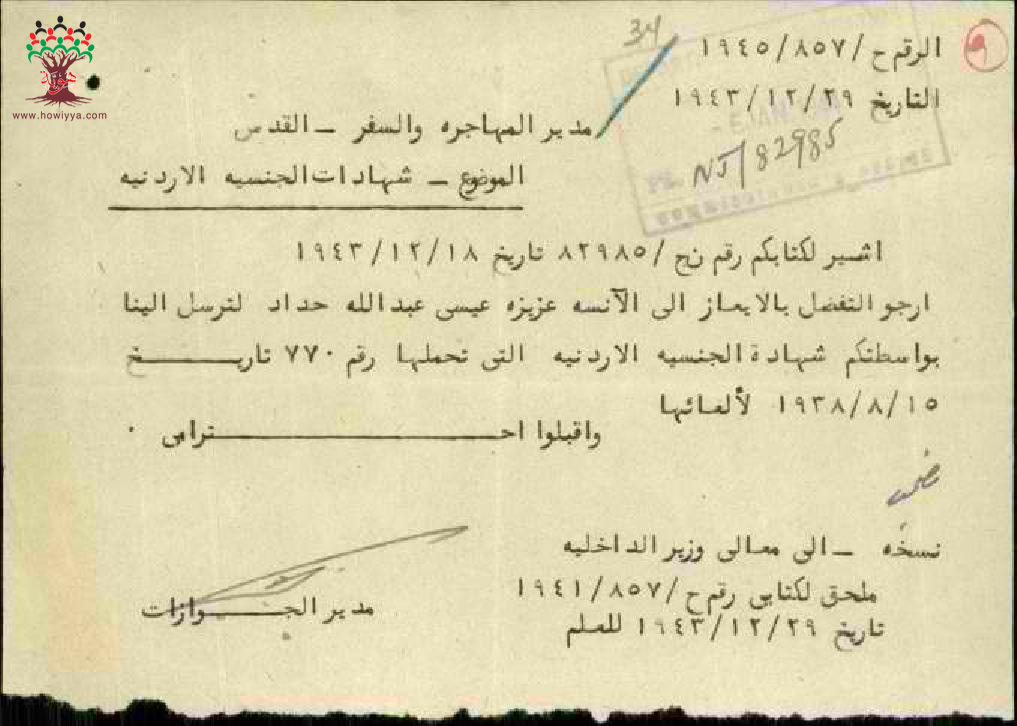 34
الرقم ح/٨٥٧/١٩٤٥
٩
التاريخ ١٩٤٣/١٢/٢٩
www.howiyya.com
مدير المهاجره والسفر - القدس
NJ/82985
الموضوع - شهادات الجنسيه الاردنيه
اشير لكتابكم رقم نج/٨٢٩٨٥ تاريخ ١٩٤٣/١٢/١٨
ارجو التفضل بالايعاز الى الآنسه عزيزه عيسى عبدالله حداد لترسل الينا
بواسطتكم شهادة الجنسيه الاردنيه التى تحملها رقم ٧٧٠ تاريـــــــخ
١٩٣٨/٨/١٥ لألغائها
واقبلوا احــــــــــــترامى .
نسخه - الى معالى وزير الداخليه
ملحق لكتابى رقم ح/٨٥٧/١٩٤١
تاريخ ١٩٤٣/١٢/٢٩ للعلم
مدير الجـــــوازات